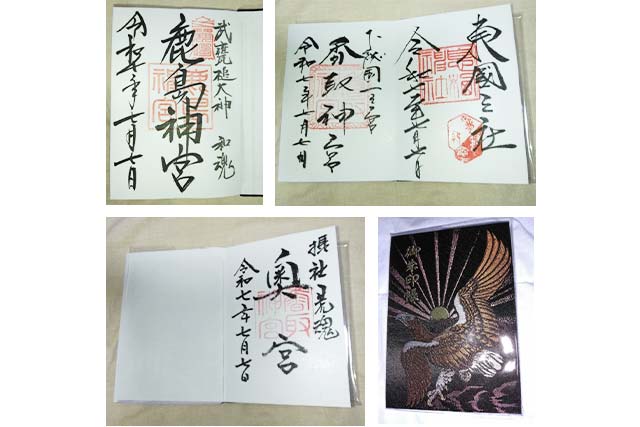 武甕槌大神 和魂
鹿島神宮
令和七年七月七日
東國三社
令和七年七月七日
下総国一之宮
香取神宮
令和七年七月七日
摂社 荒魂
奥宮
香取神宮
令和七年七月七日
御朱印帳